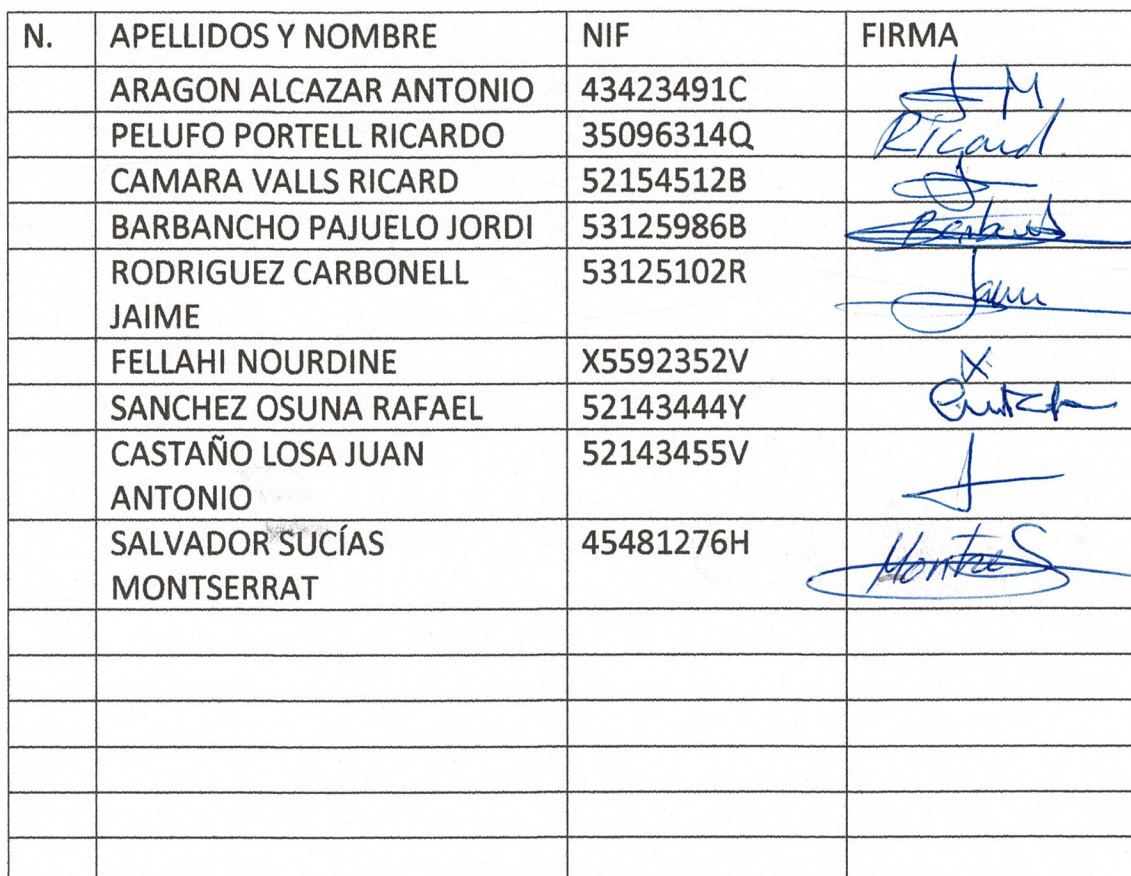 N. APELLIDOS Y NOMBRE NIF FIRMA
ARAGON ALCAZAR ANTONIO 43423491C
PELUFO PORTELL RICARDO 35096314Q Ricard
CAMARA VALLS RICARD 52154512B
BARBANCHO PAJUELO JORDI 53125986B
RODRIGUEZ CARBONELL 53125102R
JAIME
FELLAHI NOURDINE X5592352V
SANCHEZ OSUNA RAFAEL 52143444Y
CASTAÑO LOSA JUAN 52143455V
ANTONIO
SALVADOR SUCÍAS 45481276H
MONTSERRAT